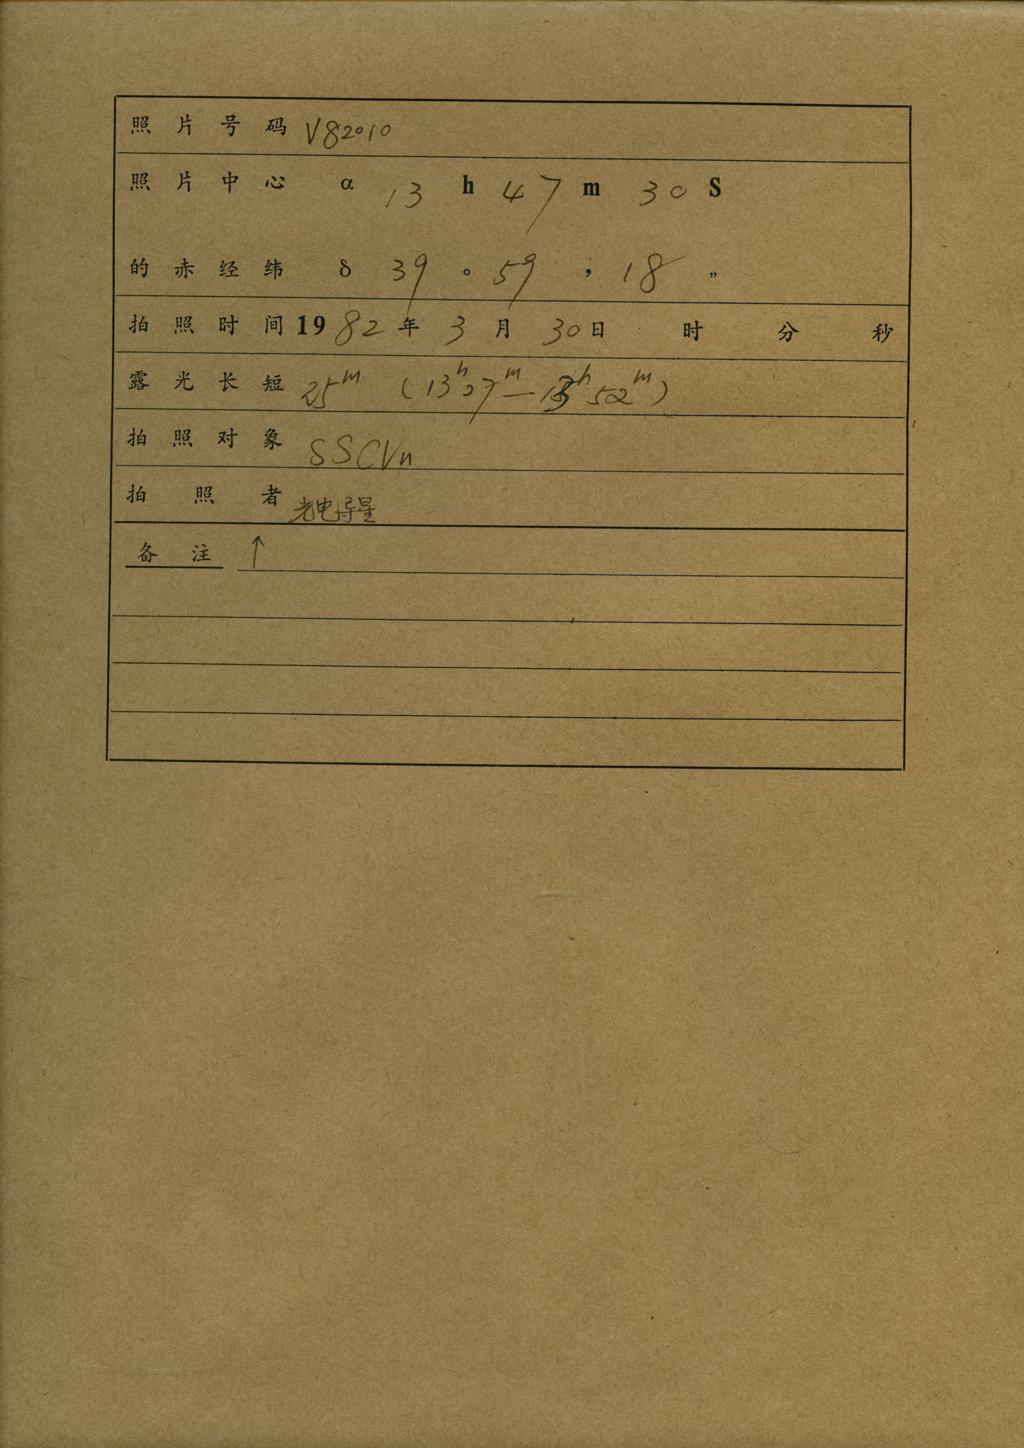 照片号码 V82010
照片中心 α 13 h 47 m 30 S
的赤经纬 δ 39 ° 59 ′ 18 ″
拍照时间 1982年 3月 30日 时 分 秒
露光长短 25ᵐ (13ʰ27ᵐ—13ʰ52ᵐ)
拍照对象 SSCVn
拍照者 光电导星
备注 ↑